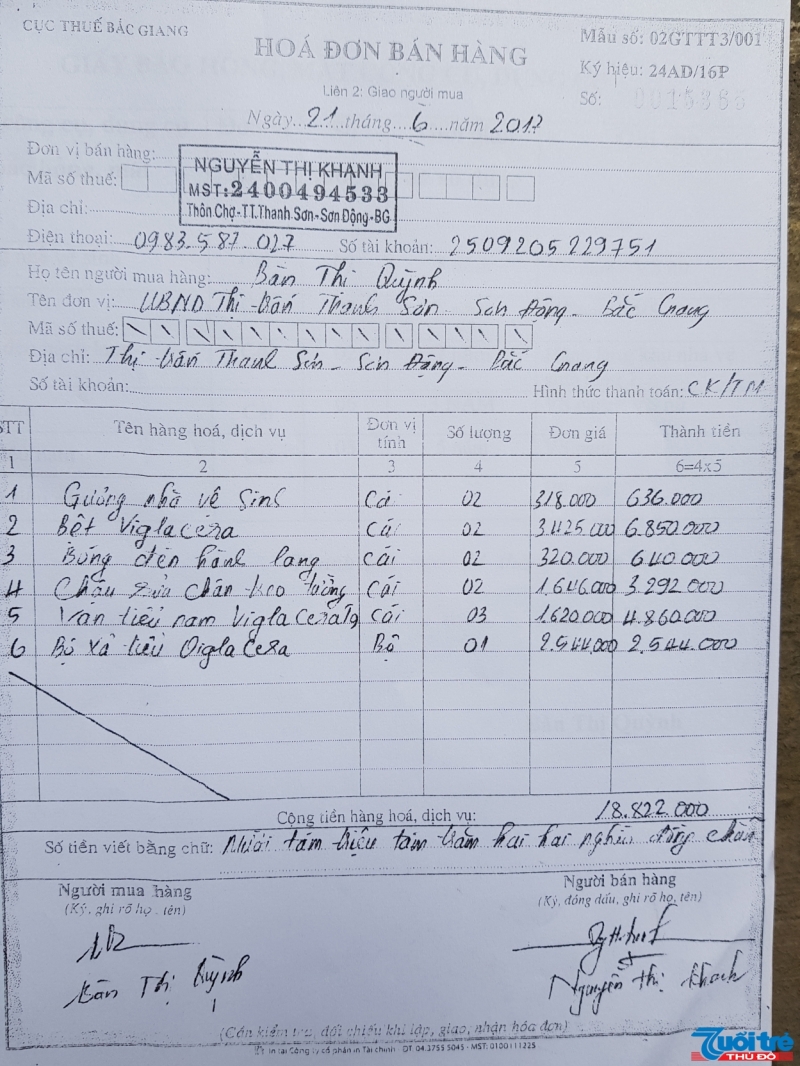 CỤC THUẾ BẮC GIANG
HOÁ ĐƠN BÁN HÀNG
Mẫu số: 02GTTT3/001
Ký hiệu: 24AD/16P
Số: 0015365
Liên 2: Giao người mua
Ngày 21 tháng 6 năm 2017
Đơn vị bán hàng:
NGUYỄN THỊ KHANH
Mã số thuế:
MST: 2400494533
Địa chỉ:
Thôn Chợ-TT.Thanh Sơn-Sơn Động-BG
Điện thoại: 0983.587.027 Số tài khoản: 2509205229751
Họ tên người mua hàng: Bàn Thị Quỳnh
Tên đơn vị: UBND Thị trấn Thanh Sơn - Sơn Động - Bắc Giang
Mã số thuế:
Địa chỉ: Thị trấn Thanh Sơn - Sơn Động - Bắc Giang
Số tài khoản: Hình thức thanh toán: CK/TM
STT Tên hàng hoá, dịch vụ Đơn vị tính Số lượng Đơn giá Thành tiền
1 2 3 4 5 6=4x5
1 Gương nhà vệ sinh Cái 02 318.000 636.000
2 Bệt Viglacera Cái 02 3.425.000 6.850.000
3 Bóng đèn hành lang Cái 02 320.000 640.000
4 Chậu rửa chân treo tường Cái 02 1.646.000 3.292.000
5 Van tiểu nam Viglacera Cái 03 1.620.000 4.860.000
6 Bộ xả tiểu Viglacera Bộ 01 2.544.000 2.544.000
Cộng tiền hàng hoá, dịch vụ: 18.822.000
Số tiền viết bằng chữ: Mười tám triệu tám trăm hai hai nghìn đồng chẵn
Người mua hàng
(Ký, ghi rõ họ, tên)
Người bán hàng
(Ký, đóng dấu, ghi rõ họ, tên)
Bàn Thị Quỳnh
Nguyễn Thị Khanh
(Cần kiểm tra, đối chiếu khi lập, giao, nhận hóa đơn)
in tại Công ty cổ phần in Tài chính ĐT 04.3755 5045 - MST: 0100111225
Tuổi trẻ
THỦ ĐÔ